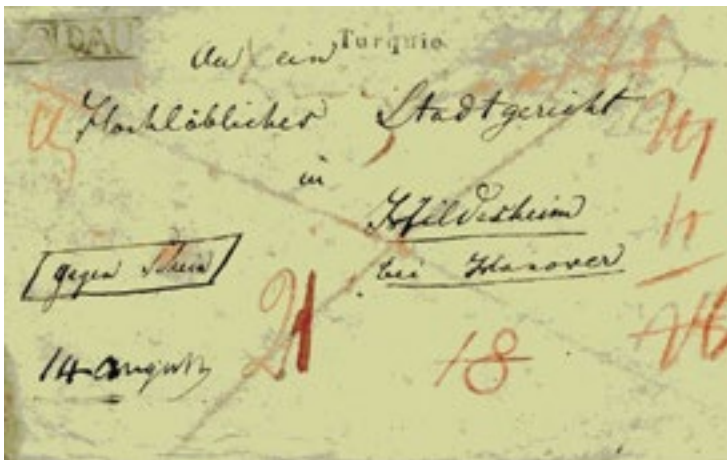 Turquie
An ein
Hochlöbliches Stadtgericht
in
Hildesheim
bei Hanover
gegen Schein
21
18
14 august